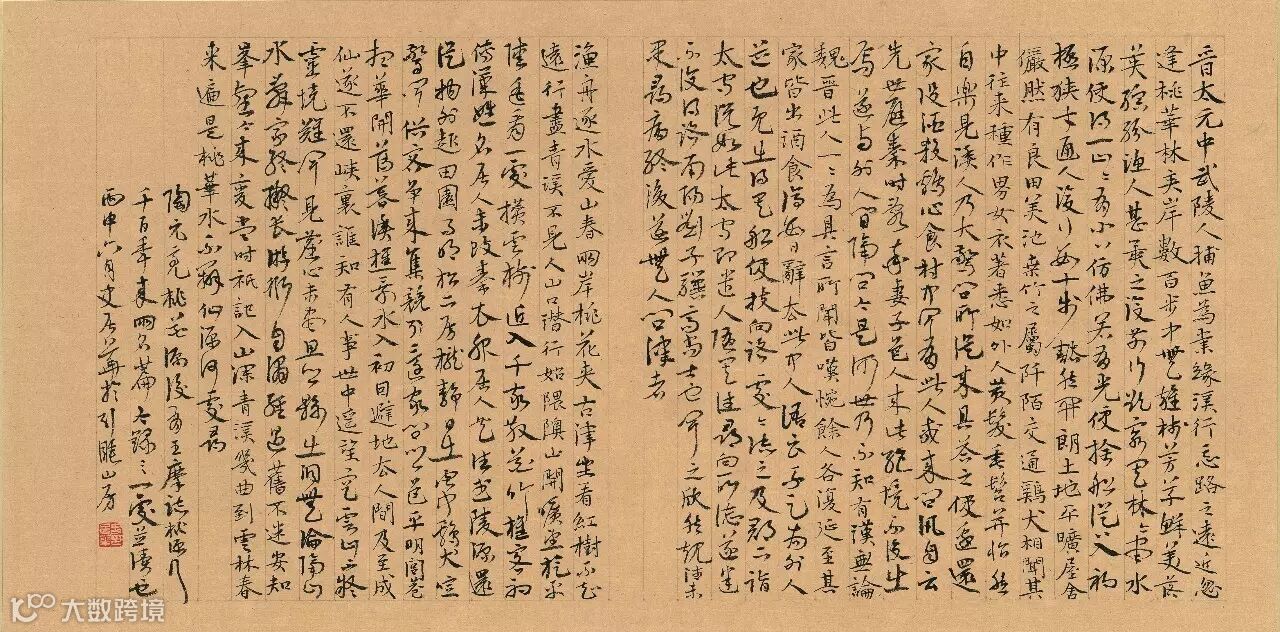 晋太元中武陵人捕魚為業緣溪行忘路之遠近忽
逢桃華林夹岸數百步中無雜樹芳草鮮美落
英繽紛漁人甚異之復前行欲窮其林林盡水
源便得一山山有小口仿佛若有光便捨船從口入初
極狹才通人復行數十步豁然開朗土地平曠屋舍
儼然有良田美池桑竹之屬阡陌交通鷄犬相聞其
中往来種作男女衣著悉如外人黄髮垂髫并怡然
自樂見漁人乃大驚問所從来具荅之便邀還
家設酒殺鷄作食村中聞有此人咸来問訊自云
先世避秦時亂率妻子邑人来此絶境不復出
焉遂与外人間隔問今是何世乃不知有漢無論
魏晉此人一一為具言所聞皆嘆惋餘人各復延至其
家皆出酒食停數日辭去此中人語云不足為外人
道也既出得其船便扶向路處處誌之及郡下詣
太守説如此太守即遣人隨其往尋向所誌遂迷
不復得路南陽劉子驥高尚士也聞之欣然規往未
果尋病終後遂無人問津者
漁舟逐水愛山春兩岸桃花夹古津坐看紅樹不知
遠行盡青溪不見人山口潛行始隈隩山開曠望旋平
陸遥看一處攢雲樹近入千家散花竹樵客初
傳漢姓名居人未改秦衣服居人共住武陵源還
從物外起田園月明松下房櫳静日出雲中鷄犬喧
驚聞俗客争来集競引還家問都邑平明閭巷
掃華開薄暮漁樵乘水入初因避地去人間及至成
仙遂不還峽裏誰知有人事世中遥望空雲山不疑
靈境難聞見塵心未盡思鄉縣出洞無論隔山
水辭家終擬長游衍自謂經過舊不迷安知
峯壑今来變當時祇記入山深青溪幾曲到雲林春
来遍是桃華水不辨仙源何處尋
陶元亮桃花源後有王摩詰桃源行
千百年来兩名篇今録之一處并讀也
丙申六月史居薌於引睡山房
大数跨境